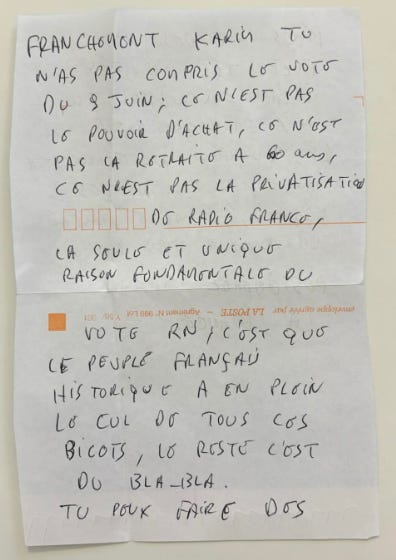 FRANCHEMONT KARIM TU
N'AS PAS COMPRIS LE VOTE
DU 9 JUIN ; CE N'EST PAS
LE POUVOIR D'ACHAT, CE N'EST
PAS LA RETRAITE A 60 ans,
CE N'EST PAS LA PRIVATISATION
DE RADIO FRANCE,
LA SEULE ET UNIQUE
RAISON FONDAMENTALE DU
enveloppe agréée par LA POSTE - Agrément N° 999 Lot
VOTE RN ; C'EST QUE
LE PEUPLE FRANÇAIS
HISTORIQUE A EN PLEIN
LE CUL DE TOUS CES
BICOTS, LE RESTE C'EST
DU BLA-BLA.
TU PEUX FAIRE DES